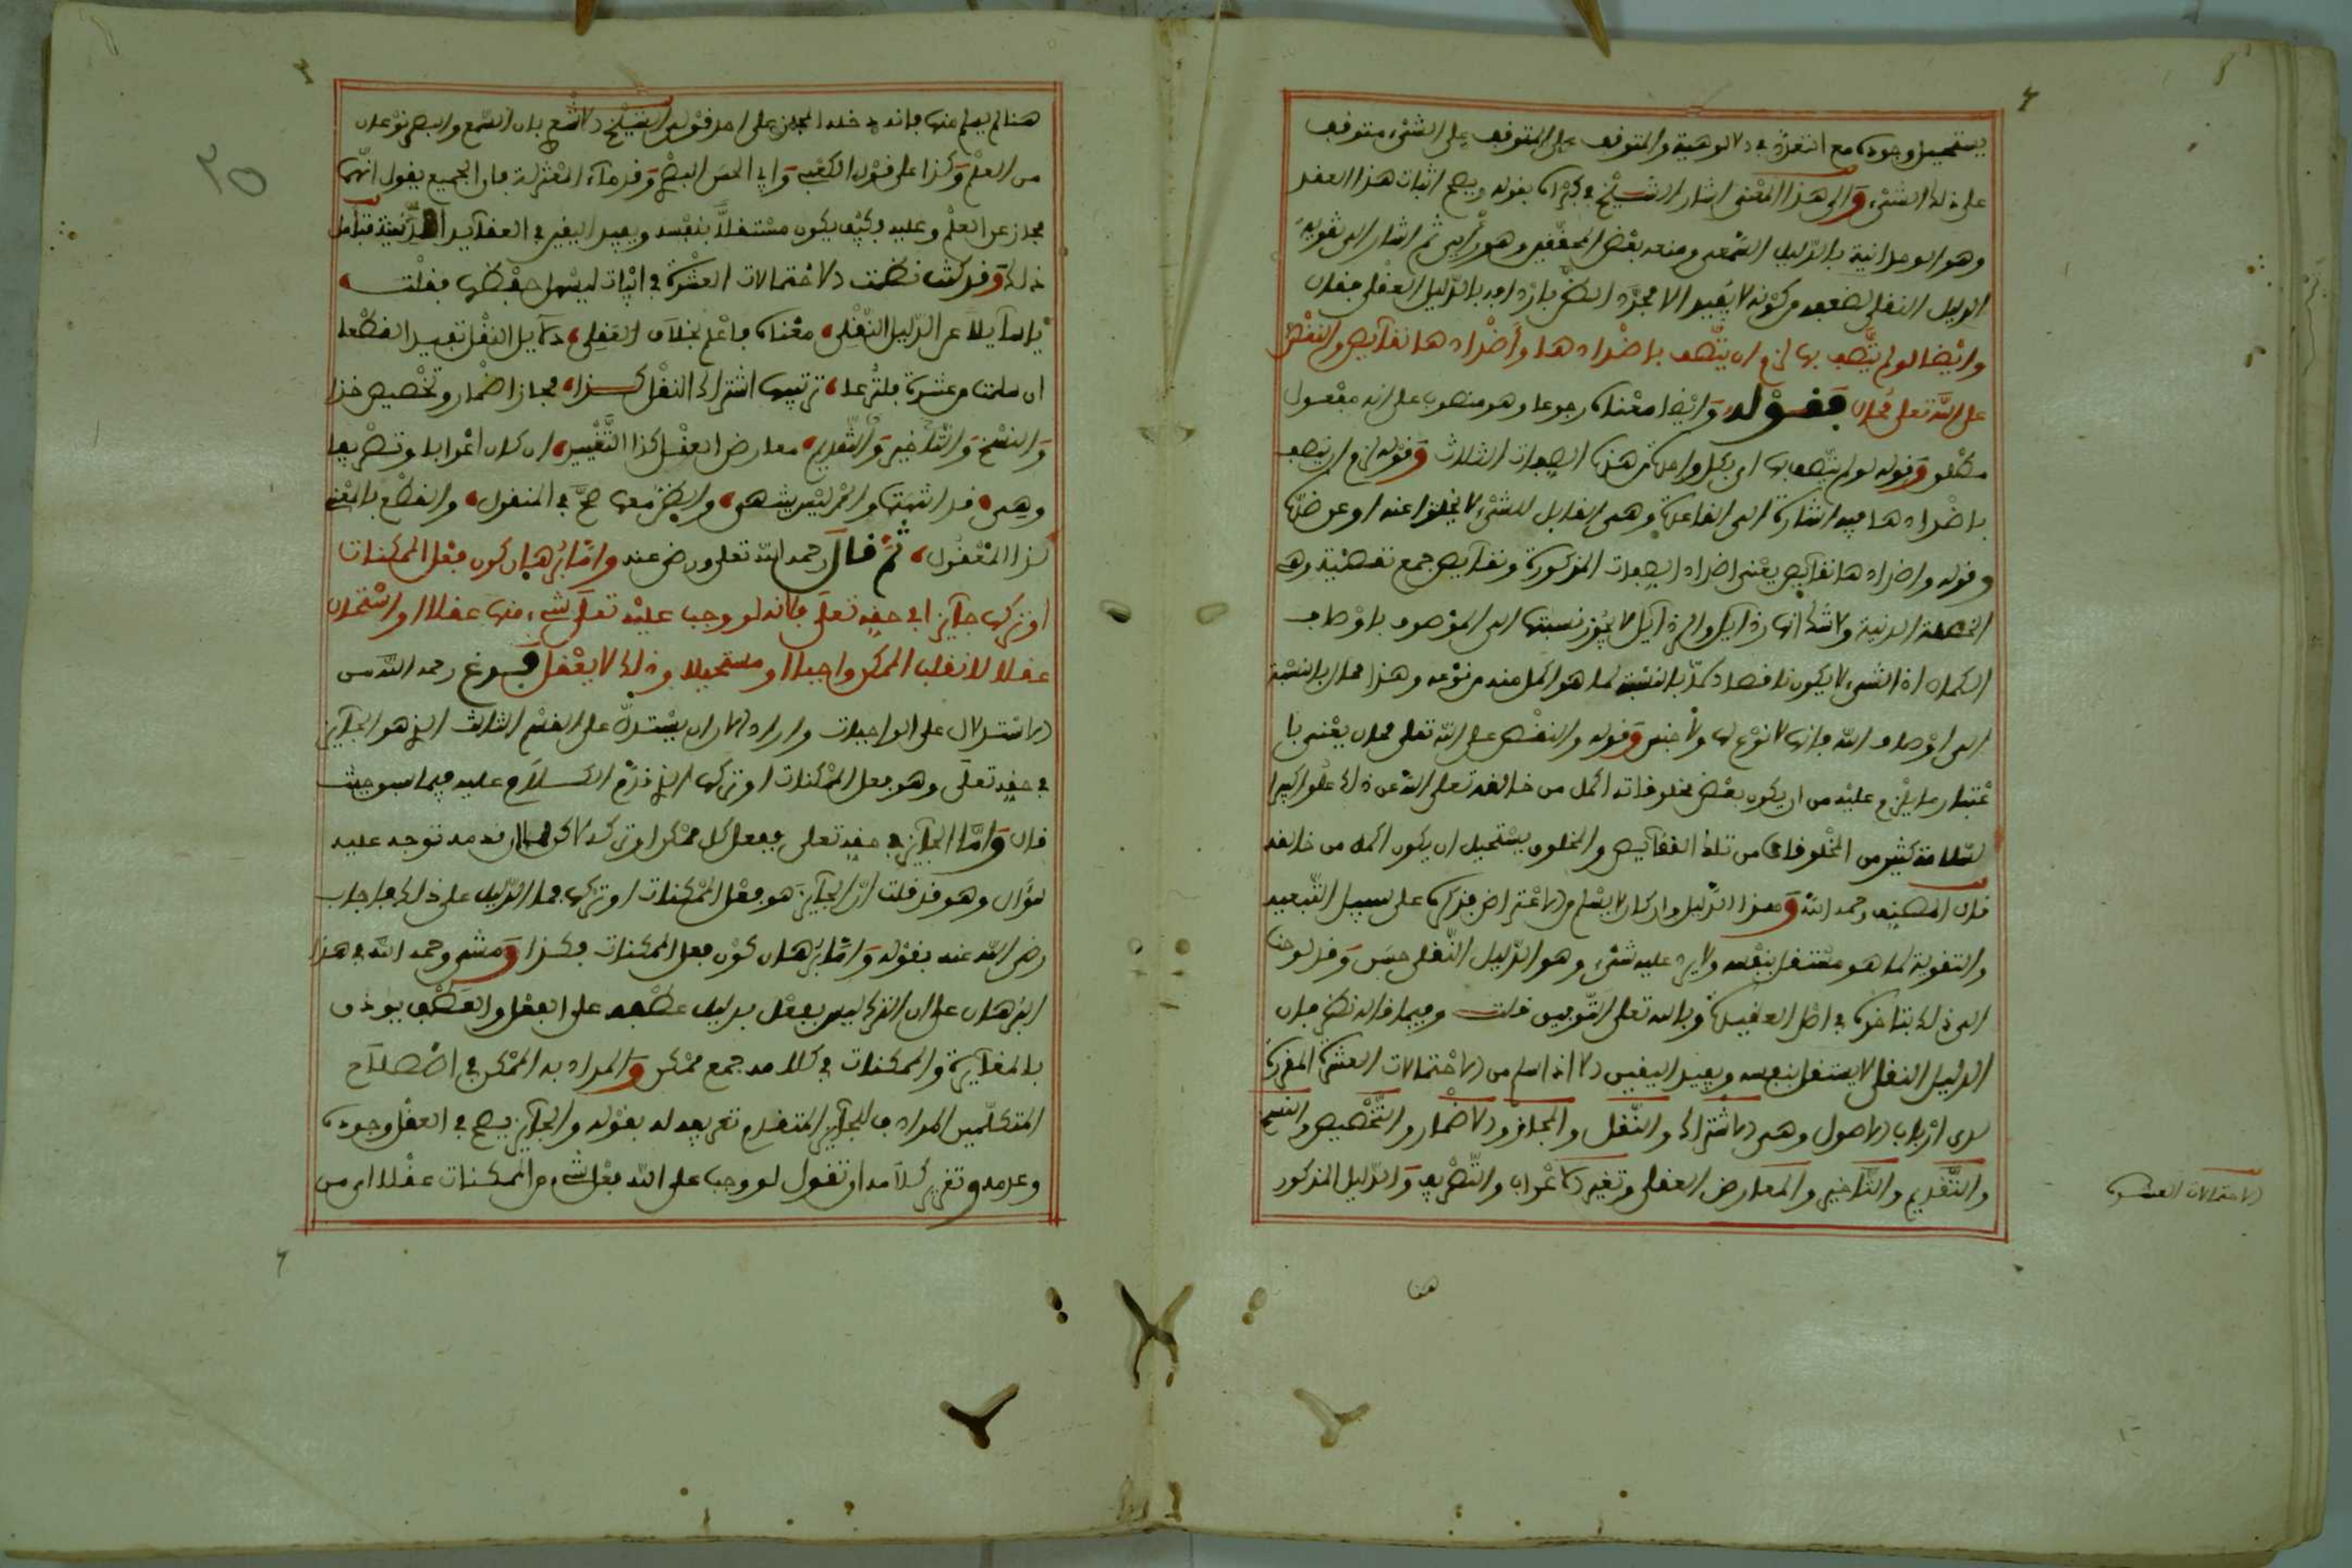 يستحيل وجوده مع التعدد في الالوهية والمتوقف على المتوقف على الشيء متوقف
على ذلك الشيء والى هذا المعنى اشار الشيخ في كبراه بقوله ويصح اثبات هذا العقد
وهو الوحدانية بالدليل السمعي ومنعه بعض المحققين وهو رأيي ثم اشار الى تقوية
الدليل النقلي لضعفه من كونه لا يفيد الا مجرد الظن بازدافه بالدليل العقلي فقال
وايضا لو لم يتصف بها لزم ان يتصف باضدادها واضدادها نقايص والنقص
على الله تعلى محال فقوله وايضا معناه رجوعا وهو منصوب على انه مفعول
مطلق وقوله لو لم يتصف بها اي بكل واحدة من هذه الصفات الثلاث وقوله لزم ان يتصف
باضدادها فيه اشارة الى القاعدة وهي القابل للشيء لا يخلوا عنه او عن ضده
وقوله واضدادها نقايص يعني اضداد الصفات المذكورة ونقايص جمع نقصية وهي
الخصلة الدنية ولا شك انها رذايل والرذايل لا يجوز نسبتها الى الموصوف باوصاف
الكمال اذ الشيء لا يكون ناقصا وكملا بالنسبة لما هو اكمل منه من نوعه وهذا محال بالنسبة
الى اوصاف الله فانها لا نوع لها ولا جنس وقوله والنقص على الله تعلى محال يعني با
عتبار ما يلزم عليه من ان يكون بعض مخلوقاته اكمل من خالقه تعلى الله عن ذلك علوا كبيرا
لسلامة كثير من المخلوقات من تلك النقايص والمخلوق يستحيل ان يكون اكمل من خالقه
قال المصنف رحمه الله وهذا الدليل وان كان لا يسلم من الاعتراض فذكره على سبيل التبعية
والتقوية لما هو مستقل بنفسه ولا يرد عليه شيء وهو الدليل النقلي حسن وقد لوحت
الى ذلك بتاخيره في اصل العقيدة وبالله تعلى التوفيق قلت وفيما قاله نظر فان
الدليل النقلي لا يستقل بنفسه ويفيد اليقين الا اذا سلم من الاحتمالات العشرة المقررة
لدى ارباب الاصول وهي الاشتراك والنقل والمجاز والاضمار والتخصيص والنسخ
والتقديم والتاخير والمعارض العقلي وتغيير الاعراب والتصريف والدليل المذكور
هنا
الاحتمالات العشرة
هنا لم يسلم منها فانه دخله المجاز على احد قولي الشيخ الاشعري بان السمع والبصر نوعان
من العلم وكذا على قول الكعبي وابي الحسن البصري وقدماء المعتزلة فان الجميع يقول انهما
مجاز عن العلم وعليه فكيف يكون مستقلا بنفسه ويفيد اليقين في العقايد الدينية فتأمل
ذلك وقد كنت نظمت الاحتمالات العشرة في ابيات ليسهل حفظها فقلت
يا سايلا عن الدليل النقلي معناه فاعلم بخلاف العقلي دلايل النقل تفيد القطعا
ان سلمت من عشرة فلترعا ترتيبها اشتراك النقل كذا مجاز اضمار وتخصيص خذا
والنسخ والتاخير والتقديم معارض العقل كذا التغيير ان كان اعرابا وتصريفا
وهي قد اثبتها والامر ليس يشتهى والظن معها صح في المنقول والقطع بالمعنى
كذا المعقول ثم قال رحمه الله تعلى ورضي عنه واما برهان كون فعل الممكنات
او تركها جايزا في حقه تعلى فانه لو وجب عليه تعلى شيء منها عقلا او استحال
عقلا لانقلب الممكن واجبا او مستحيلا وذلك لا يعقل فرغ رحمه الله من
الاستدلال على الواجبات واراد الان ان يستدل على القسم الثالث الذي هو الجايز
في حقه تعلى وهو فعل الممكنات او تركها الذي قدم الكلام عليه فيما سبق حيث
قال واما الجايز في حقه تعلى ففعل كل ممكن او تركه لا كن قدمه توجه عليه
سؤال وهو قد قلت ان الجايز هو فعل الممكنات او تركها فما الدليل على ذلك فاجاب
رضي الله عنه بقوله واما برهان كون فعل الممكنات هكذا ومشى رحمه الله في هذا
البرهان على ان الترك ليس بفعل بدليل عطفه على الفعل والعطف يوذن
بالمغايرة والممكنات في كلامه جمع ممكن والمراد به الممكن في اصطلاح
المتكلمين المرادف للجايز المتقدم تعريفه له بقوله والجايز يصح في العقل وجوده
وعدمه وتقرير كلامه ان تقول لو وجب على الله فعل شيء من الممكنات عقلا اي من
٢٥